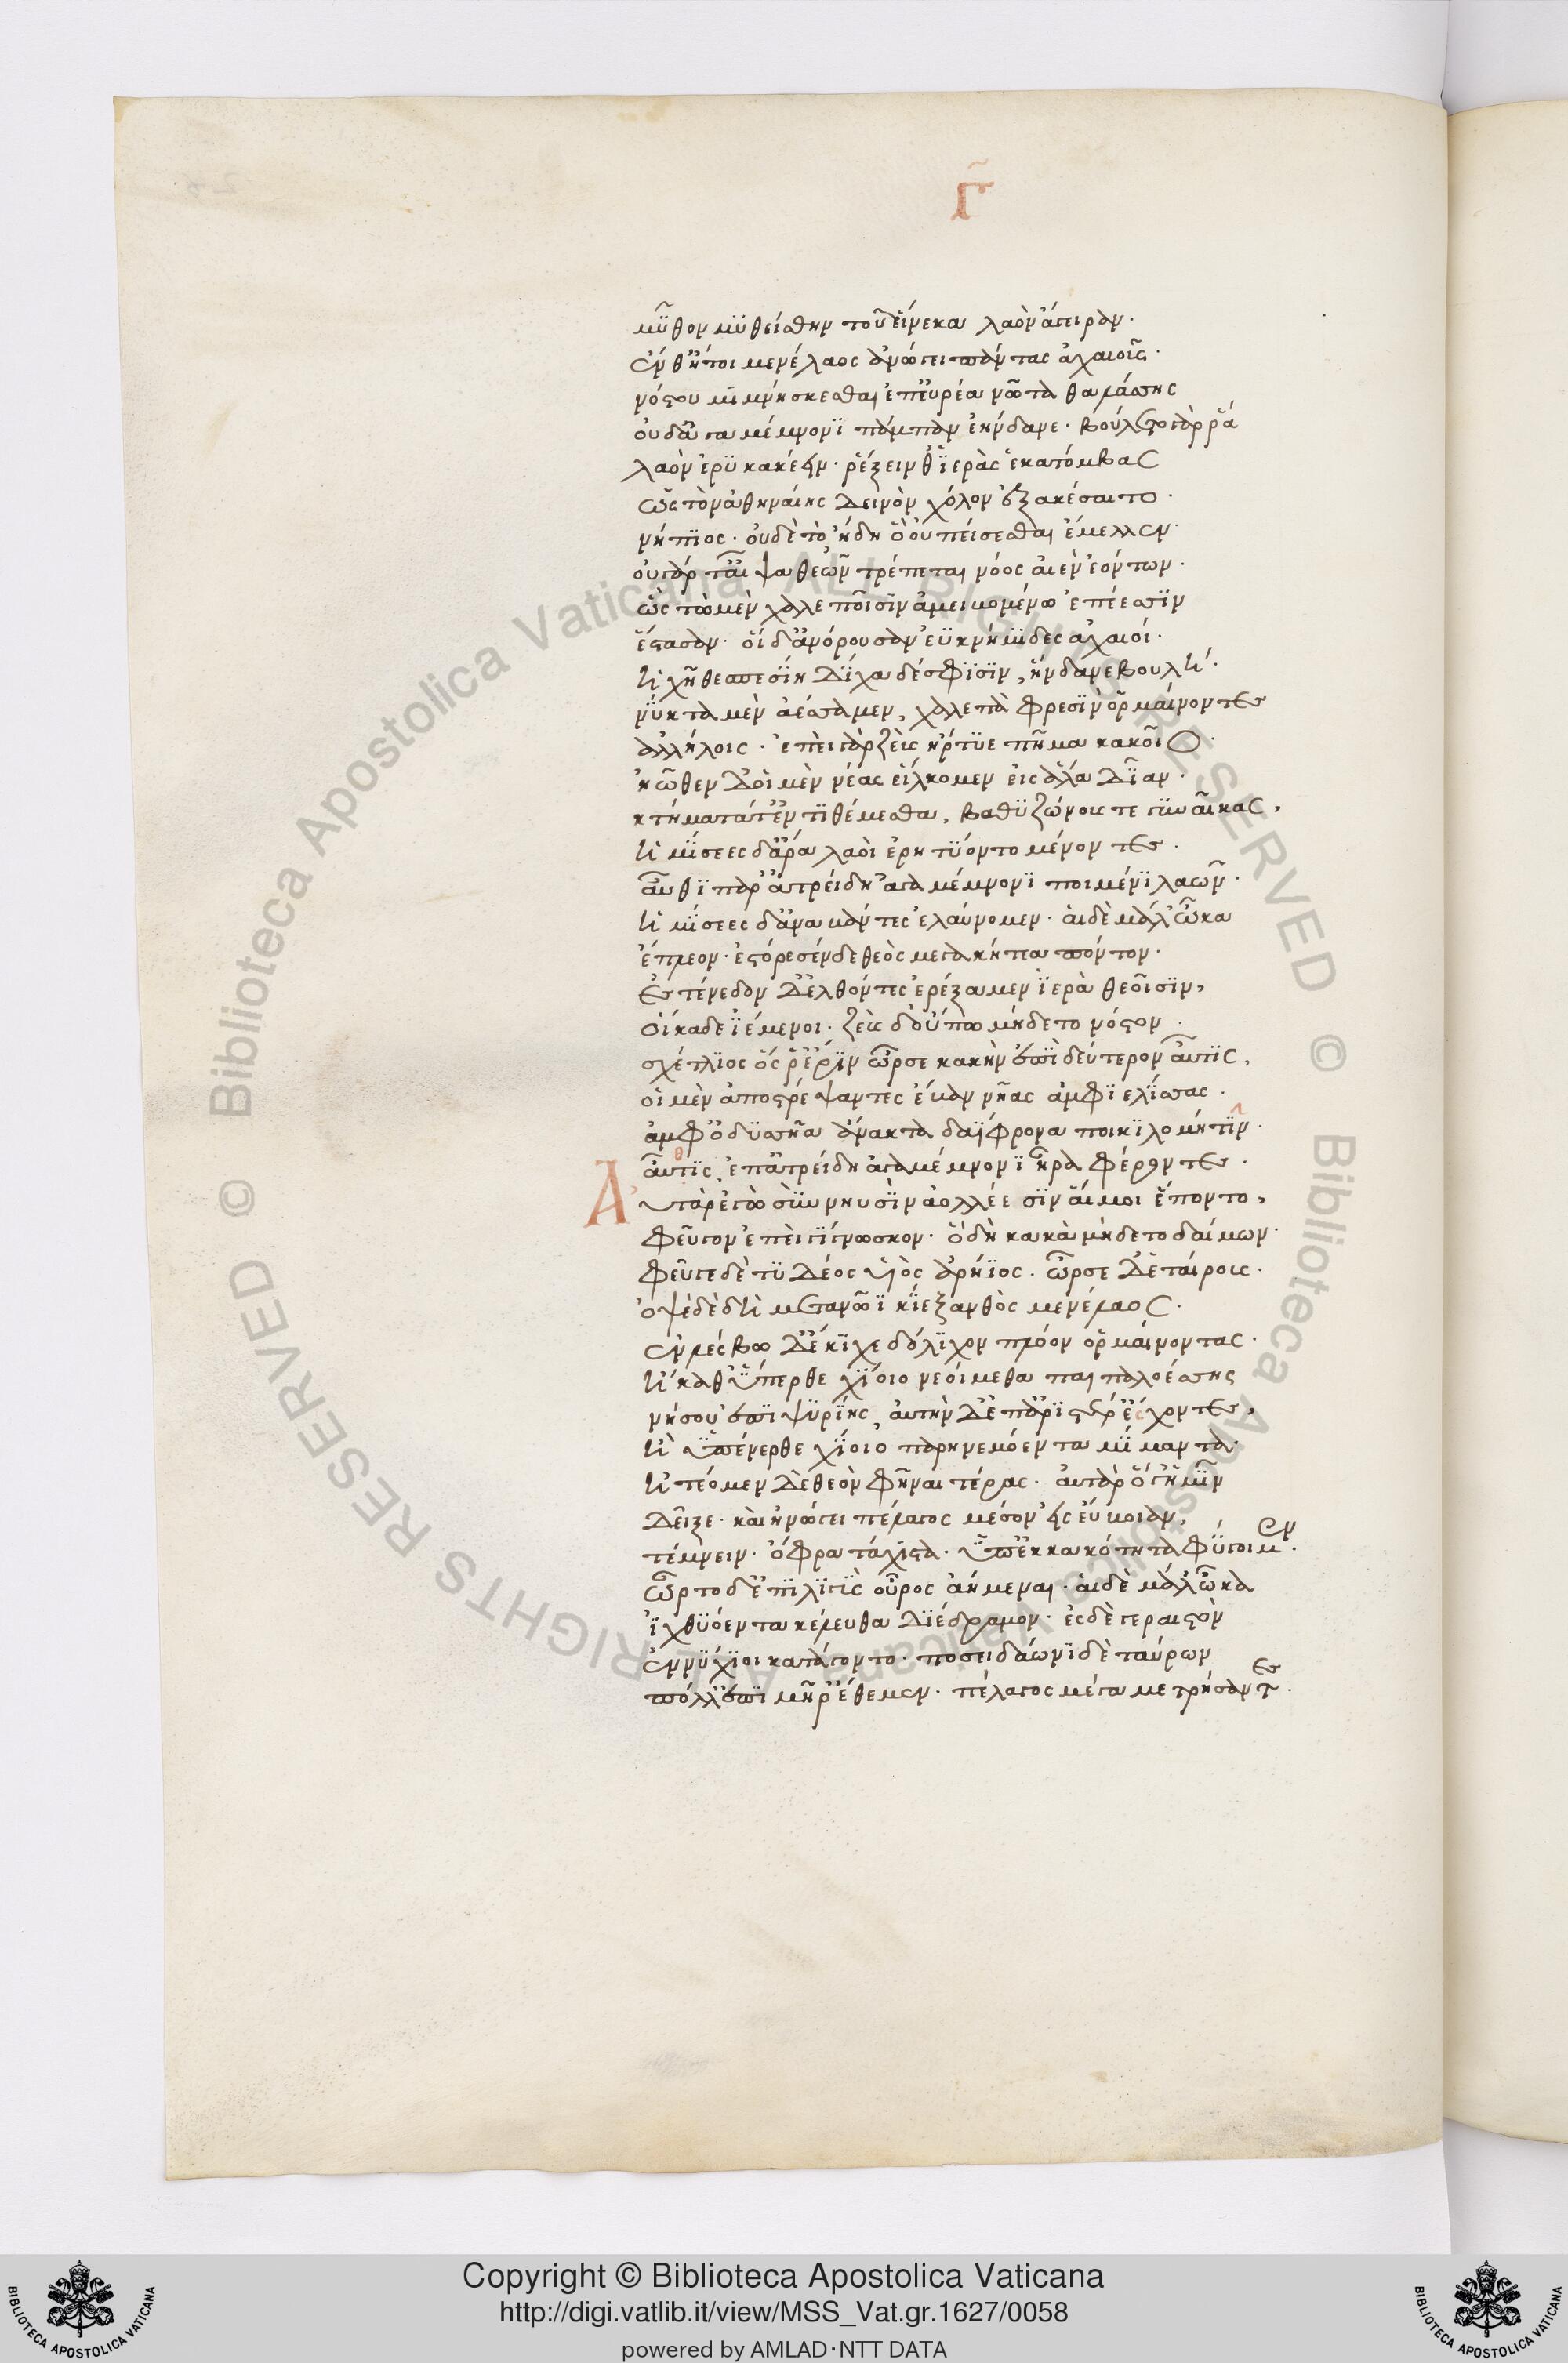 Γ
μῦθον μυθείσθην τοῦ εἵνεκα λαὸν ἄγειραν·
ἔνθ' ἤτοι μενέλαος ἀνώγει πάντας ἀχαιοὺς·
νόστου μιμνήσκεσθαι ἐπ' εὐρέα νῶτα θαλάσσης
οὐδ' ἀγαμέμνονι πάμπαν ἑήνδανε· βούλετο γάρ ῥά
λαὸν ἐρυκακέειν· ῥέξειν θ' ἱερὰς ἑκατόμβας
ὡς τὸν ἀθηναίης δεινὸν χόλον ἐξακέσαιτο·
νήπιος· οὐδὲ τὸ ἤδη ὃ οὐ πείσεσθαι ἔμελλεν·
οὐ γάρ τ' αἶψα θεῶν τρέπεται νόος αἰὲν ἐόντων·
ὣς τὼ μὲν χαλεποῖσιν ἀμειβομένω ἐπέεσσιν
ἕστασαν· οἱ δ' ἀνόρουσαν ἐϋκνήμιδες ἀχαιοί·
ἠχῆ θεσπεσίη δίχα δέ σφισιν, ἥνδανε βουλή·
νύκτα μὲν ἀέσσαμεν, χαλεπὰ φρεσὶν ὁρμαίνοντες
ἀλλήλοις· ἐπὶ γὰρ ζεὺς ἤρτυε πῆμα κακοῖο·
ἠῶθεν δ' οἱ μὲν νέας εἵλκομεν εἰς ἅλα δῖαν·
κτήματά τ' ἐντιθέμεσθα, βαθυζώνους τε γυναῖκας,
ἡμίσεες δ' ἄρα λαοὶ ἐρητύοντο μένοντες·
αὖθι παρ' ἀτρείδη ἀγαμέμνονι ποιμένι λαῶν·
ἡμίσεες δ' ἀναβάντες ἐλαύνομεν· αἱ δὲ μάλ' ὦκα
ἔπλεον· ἐστόρεσεν δὲ θεὸς μεγακήτεα πόντον·
ἐς τένεδον δ' ἐλθόντες ἐρέξαμεν ἱερὰ θεοῖσιν,
οἴκαδε ἱέμενοι· ζεὺς δ' οὔπω μήδετο νόστον·
σχέτλιος ὅς ῥ' ἔριν ὦρσε κακὴν ἔπι δεύτερον αὖτις,
οἱ μὲν ἀποστρέψαντες ἔβαν νῆας ἀμφιελίσσας·
ἀμφ' ὀδυσσῆα ἄνακτα δαΐφρονα ποικιλομήτιν·
αὖτις ἐπ' ἀτρείδη ἀγαμέμνονι ἦρα φέροντες·
Αὐτὰρ ἐγὼ σὺν νηυσὶν ἀολλέεσιν αἵ μοι ἕποντο,
φεῦγον ἐπεὶ γίγνωσκον· ὃ δὴ κακὰ μήδετο δαίμων·
φεῦγε δὲ τυδέος υἱὸς ἀρήϊος· ὦρσε δ' ἑταίρους·
ὀψὲ δὲ δὴ μετὰ νῶϊ κίε ξανθὸς μενέλαος·
ἐν λέσβω δ' ἔκιχε δόλιχον πλόον ὁρμαίνοντας·
ἢ καθύπερθε χίοιο νεοίμεθα παιπαλοέσσης
νήσου ἔπι ψυρίης, αὐτὴν δ' ἐπ' ἀρίστερ' ἔχοντες,
ἢ ὑπένερθε χίοιο παρ' ἠνεμόεντα μίμαντα·
ᾐτέομεν δὲ θεὸν φῆναι τέρας· αὐτὰρ ὅ γ' ἡμῖν
δεῖξε· καὶ ἠνώγει πέλαγος μέσον εἰς εὔβοιαν,
τέμνειν· ὄφρα τάχιστα· ὑπὲκ κακότητα φύγοιμεν·
ὦρτο δ' ἐπὶ λιγὺς οὖρος ἀήμεναι· αἱ δὲ μάλ' ὦκα
ἰχθυόεντα κέλευθα διέδραμον· ἐς δὲ γεραιστὸν
ἐννύχιοι κατάγοντο· ποσειδάωνι δὲ ταύρων
πόλλ' ἔπι μῆρ' ἔθεμεν· πέλαγος μέγα μετρήσαντες·
Copyright © Biblioteca Apostolica Vaticana
http://digi.vatlib.it/view/MSS_Vat.gr.1627/0058
powered by AMLAD·NTT DATA